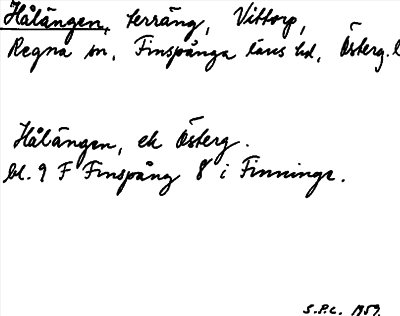 Hålängen, terräng, Vittorp,
Regna sn, Finspånga läns hd, Österg. l
Hålängen, ek Österg.
bl. 9 F Finspång 8 i Finninge.
S.P.C. 1959.